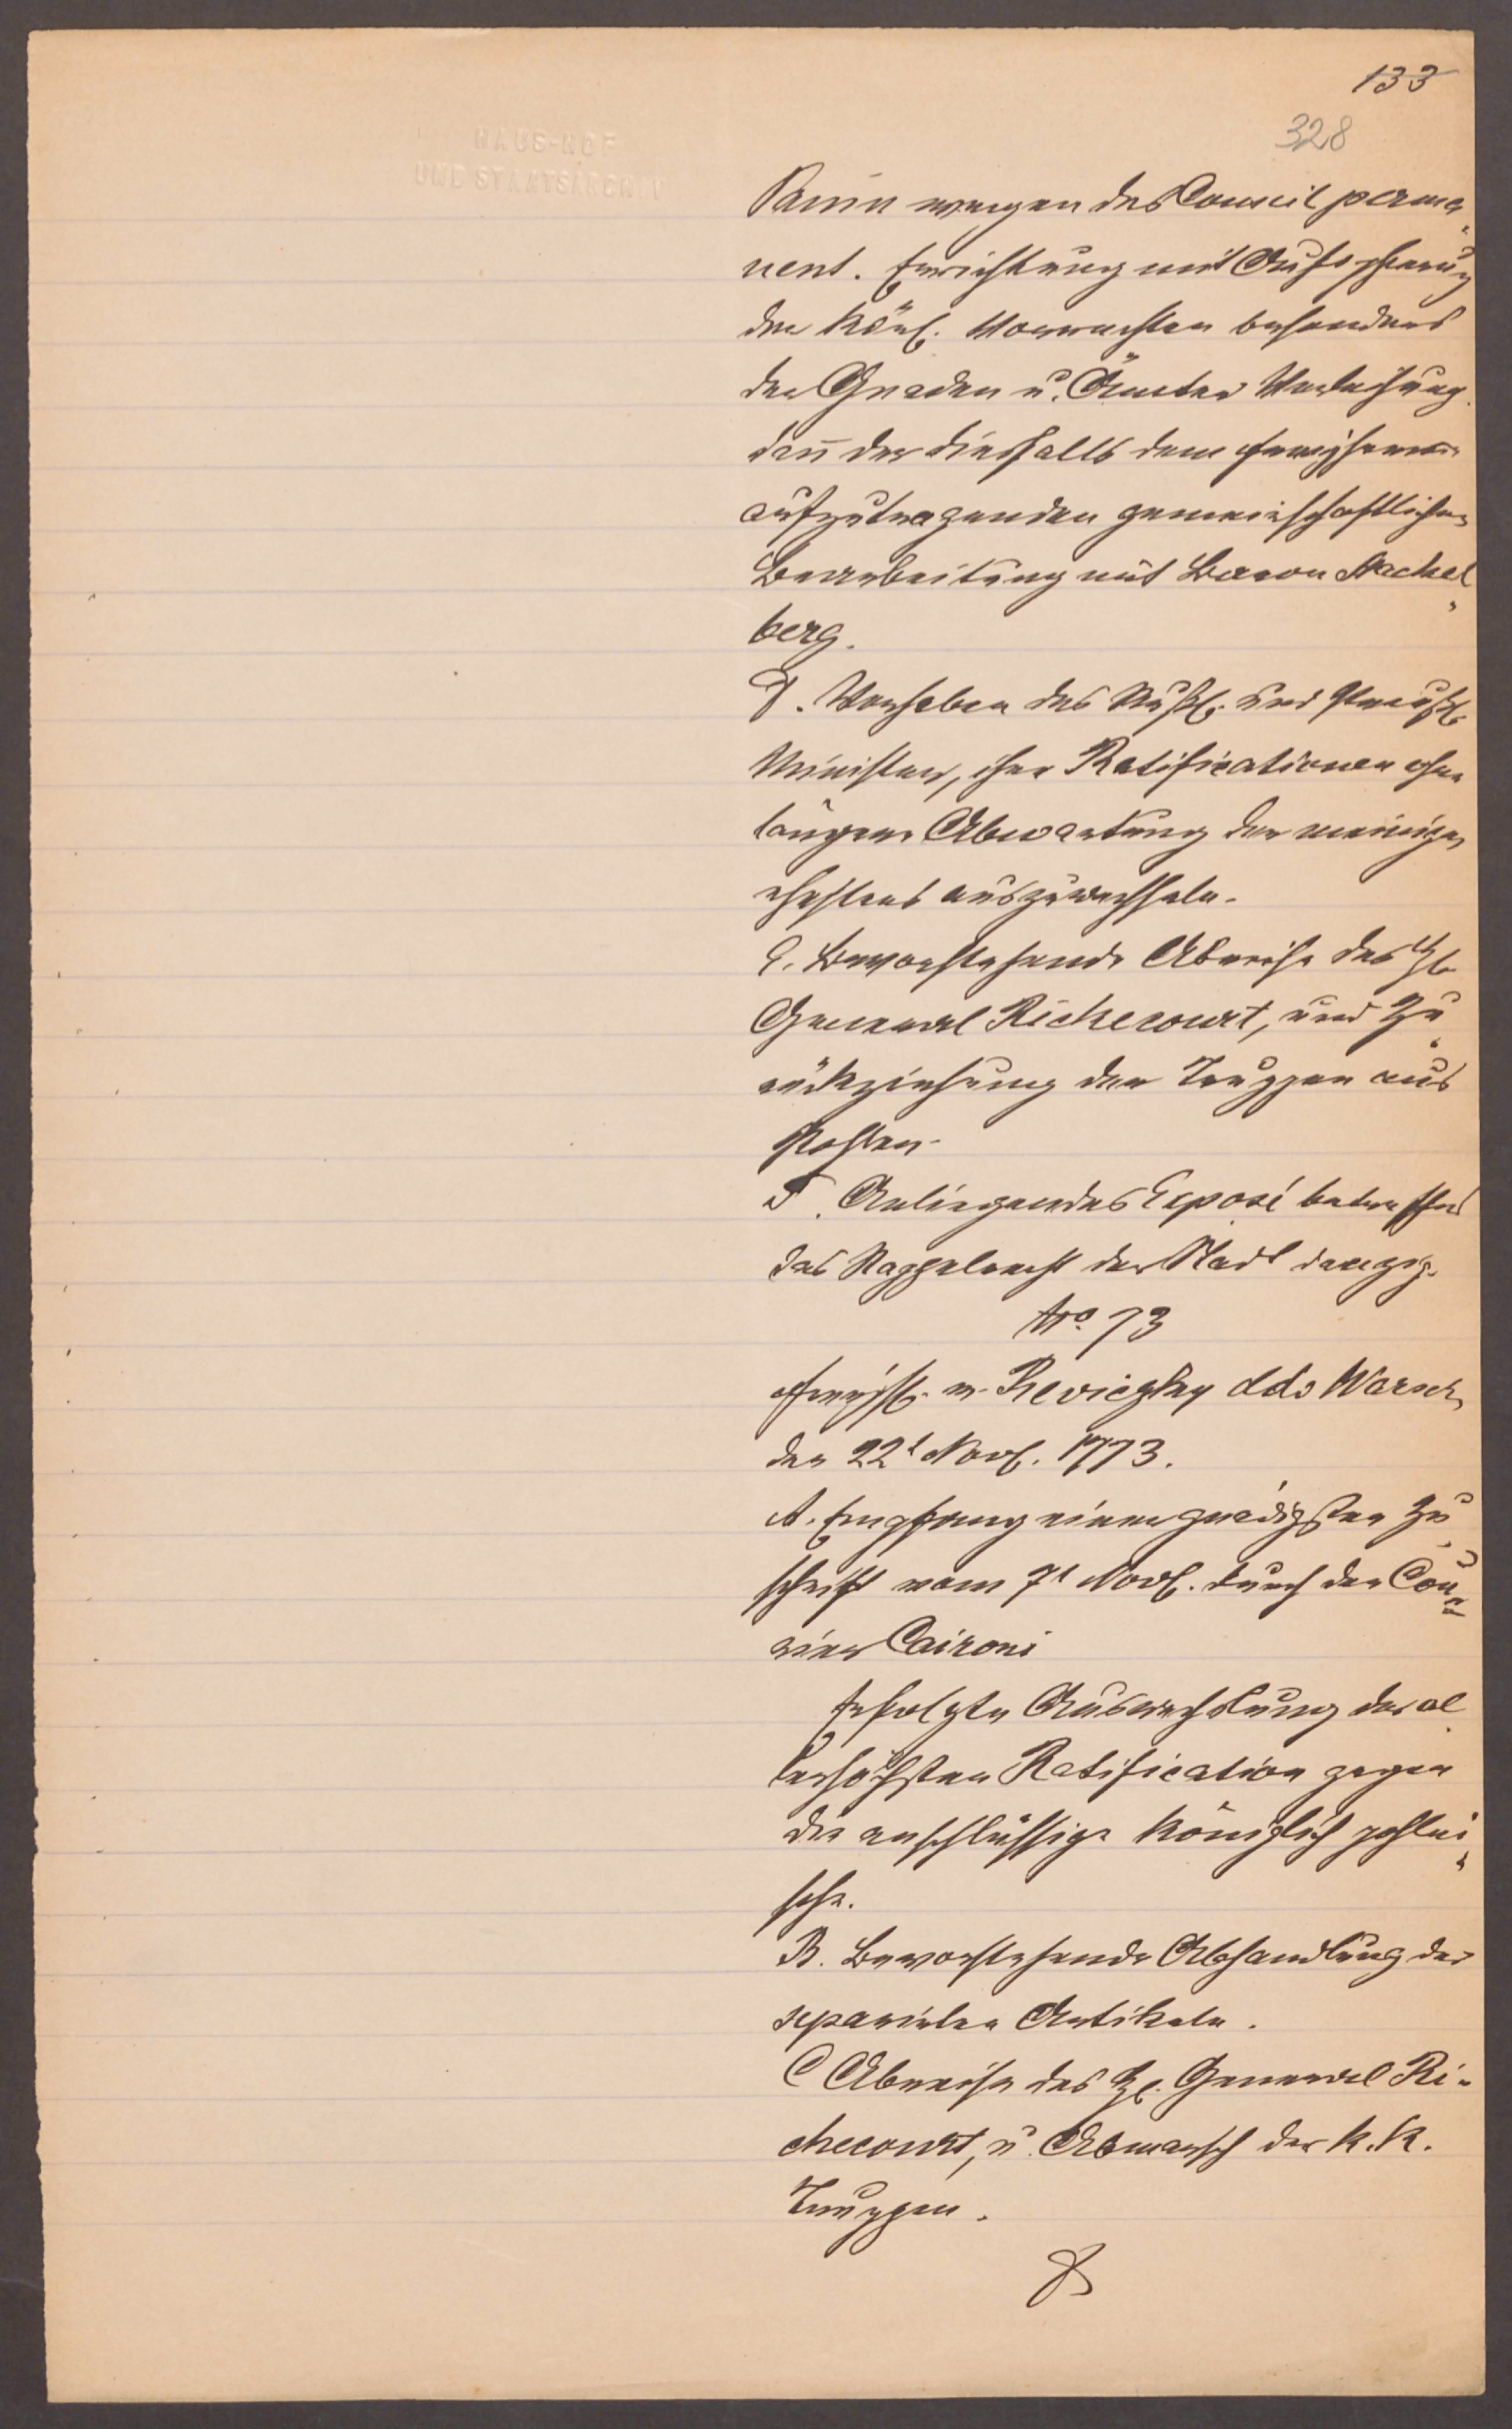 133
328
HAUS-HOF
UND STAATSARCHIV
Panin wegen des Conseil perma„
nent. Errichtung mit Aufopferung
der Königl. Vorrechten besonders
der Gnaden u. Ämter Verleihung
dan̄ der diesfalls dem
aufzutragenden gemeinschaftlichen
Bearbeitung mit Baron Stackel„
berg.
D. Vorhaben des Rußl. und Preußl.
Minister, ihre Ratificationen ohne
länger Abwartung der meinigen
ehestens auszuwechseln.
E. Bevorstehende Abreise des H.
General Richecourt, und Zu„
rückziehung der Truppen aus
Pohlen.
F. Anliegendes Exposé betreffend
das Stappelrecht der Stadt Danzig.
No. 73
Freyh. v. Reviczky ddo Warsch.
den 22t Novb. 1773.
A. Empfang einer gnädigsten Zu„
schrift vom 7t Novb. durch den Cou„
rier Caironi
Erfolgte Auswechslung der al
lerhöchsten Ratification gegen
die anschlüssige Königlich pohlni„
sche.
B. Bevorstehende Abhandlung der
separirten Artikeln.
C Abreise des H. General Ri-
checourt, u. Abmarsch der k. k.
Truppen.